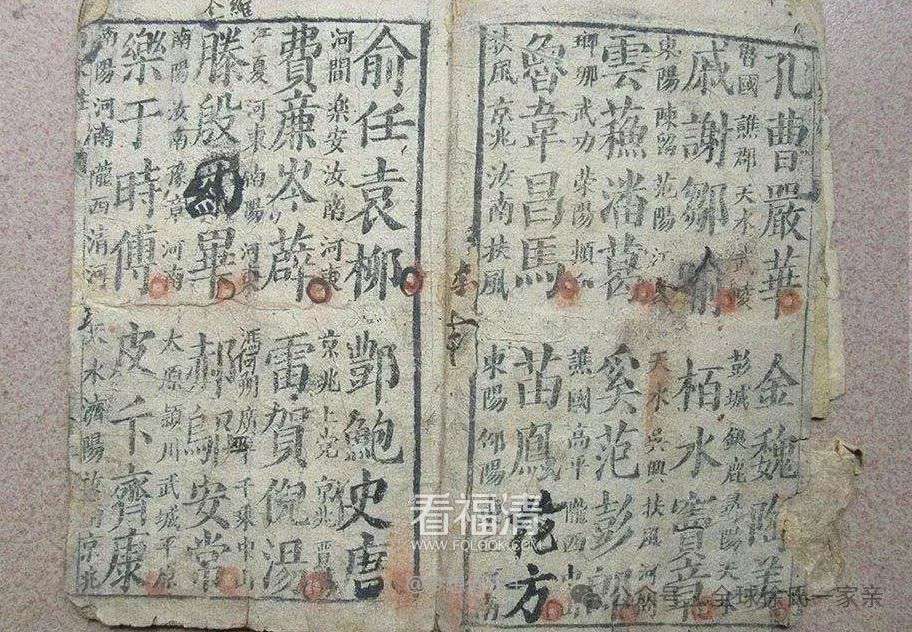 孔曹嚴華
魯國 譙郡 天水 武陵
戚謝鄒喻
東陽 陳留 范陽 江
雲蘇潘葛
瑯琊 武功 滎陽 頓
魯韋昌馬
扶風 京兆 汝南 扶風
金魏陶姜
彭城 鉅鹿 陽 天水
栢水竇章
天水 吳興 扶風 河
奚范彭郎
譙國 高平 隴西 中山
苗鳳花方
東陽 郃陽 河南
俞任袁柳
河間 樂安 汝南 河東
費廉岑薛
江夏 河東 南陽 河東
滕殷羅畢
南陽 汝南 豫章 河南
樂于時傅
南陽 河南 隴西 清河
酆鮑史唐
京兆 上党 京兆 晉
雷賀倪湯
馮翊 廣平 千乘 中山
郝鄔安常
太原 潁川 武城 平原
皮卞齊康
天水 濟陽 京兆
看福清
WWW.FOLOOK.COM